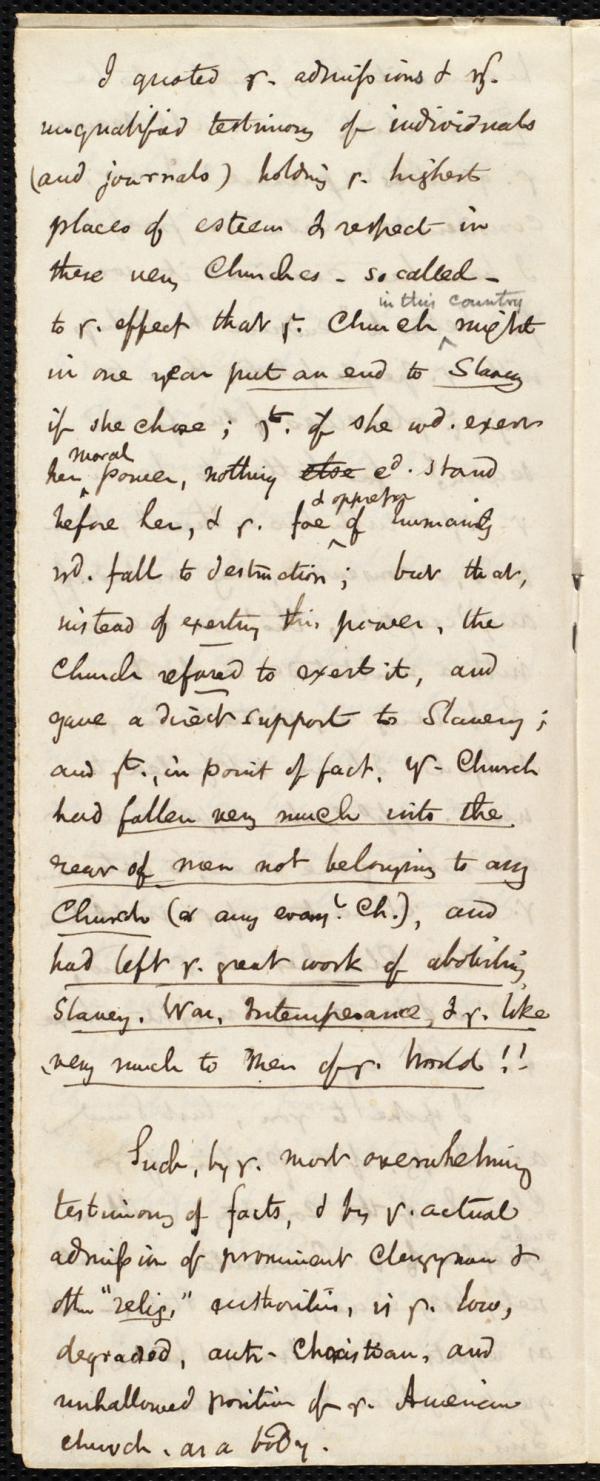 I quoted yr. admissions & ys.
unqualified testimony of individuals
(and journals) holding ye. highest
places of esteem & respect in
these very Churches - so called -
in this country
to ye. effect that ye. Church ^ might
in one year put an end to Slavery
if she chose; yt. if she wd. exert
moral
her ^ power, nothing else cd. stand
& oppressor
before her, & ye. foe ^ of humanity
wd. fall to destruction; but that,
instead of exerting this power, the
Church refused to exert it, and
gave a direct support to Slavery;
and yt., in point of fact, ye. Church
had fallen very much into the
rear of men not belonging to any
Church (or any evangl. Ch.), and
had left ye. great work of abolishing
Slavery, War, Intemperance, & ye. like
very much to Men of ye. World!!
Such, by ye. most overwhelming
testimony of facts, & by ye. actual
admission of prominent Clergymen &
other "relig." authorities, is ye. low,
degraded, anti-Christian, and
unhallowed position of ye. American
church, as a body.